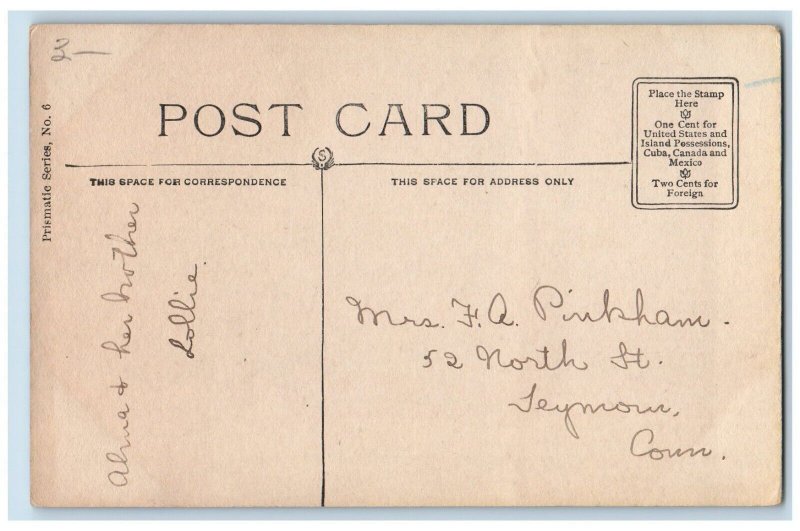 2-
Prismatic Series, No. 6
POST CARD
S
THIS SPACE FOR CORRESPONDENCE
THIS SPACE FOR ADDRESS ONLY
Place the Stamp
Here
One Cent for
United States and
Island Possessions,
Cuba, Canada and
Mexico
Two Cents for
Foreign
Alma & her brother
Lollie.
Mrs. F. A. Pinkham.
52 North St.
Seymour,
Conn.